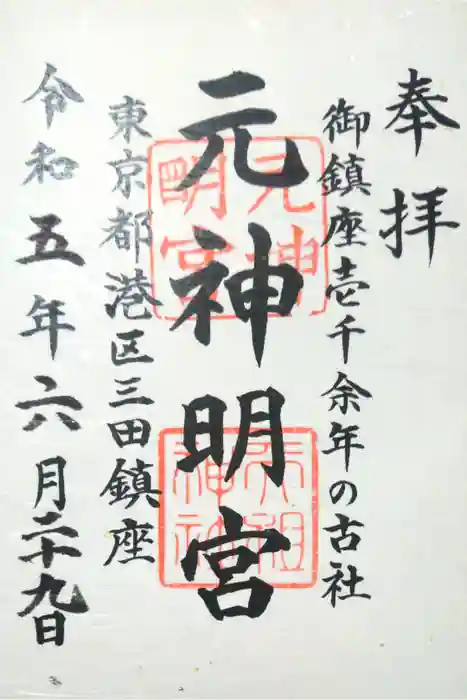 奉拝
御鎮座壱千余年の古社
元神明宮
元神明宮
東京都港区三田鎮座
令和五年六月二十九日